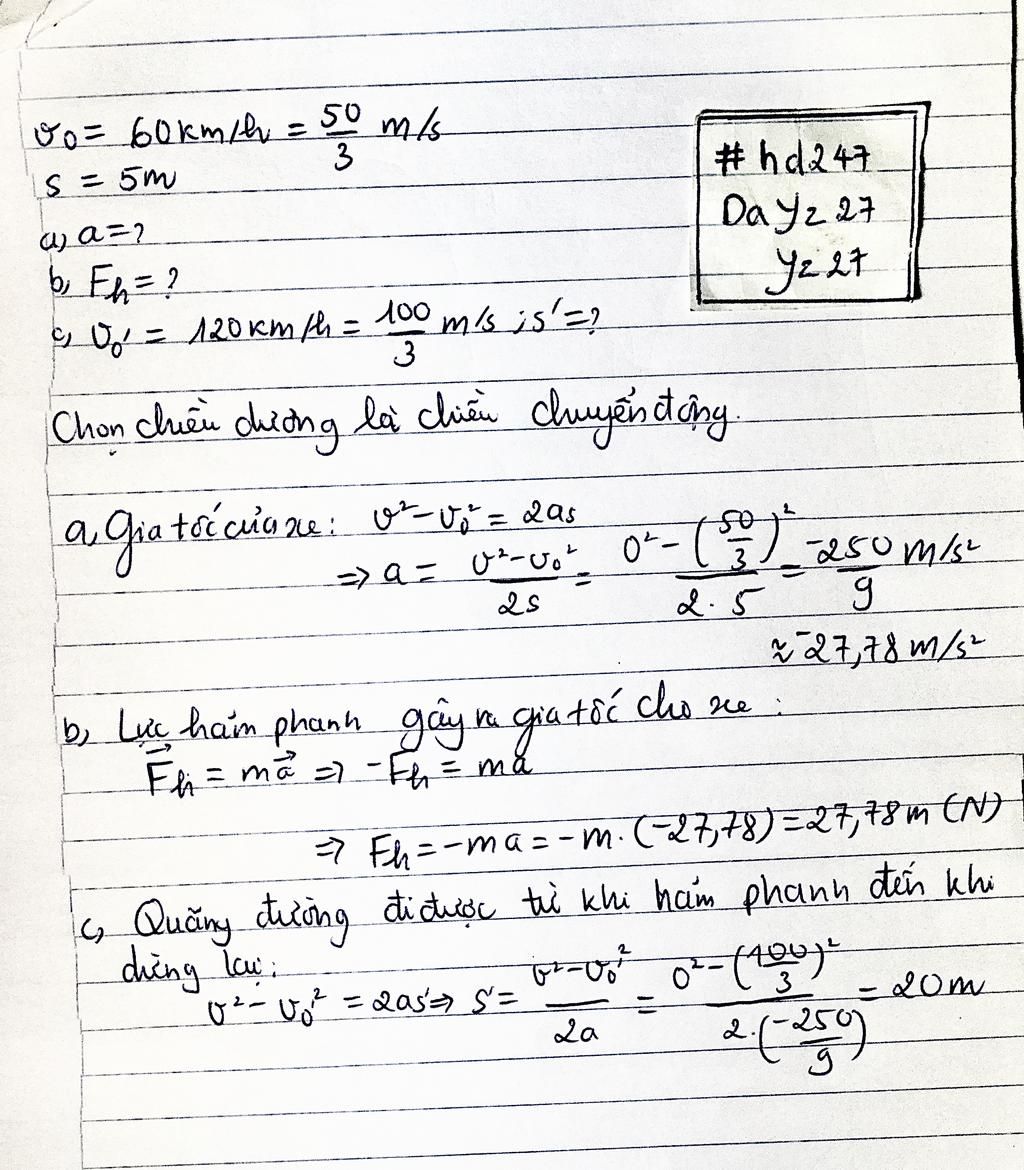 v₀ = 60km/h = 50/3 m/s
s = 5m
a, a = ?
b, Fh = ?
c, v₀' = 120km/h = 100/3 m/s ; s' = ?
#hd247
Dayz27
yz27
Chọn chiều dương là chiều chuyển động.
a, Gia tốc của xe: v² - v₀² = 2as
=> a = (v² - v₀²)/(2s) = (0² - (50/3)²)/(2.5) = -250/9 m/s²
≈ -27,78 m/s²
b, Lực hãm phanh gây ra gia tốc cho xe :
F⃗h = ma⃗ => -Fh = ma
=> Fh = -ma = -m.(-27,78) = 27,78m (N)
c, Quãng đường đi được từ khi hãm phanh đến khi
dừng lại:
v² - v₀'² = 2as' => s' = (v² - v₀'²)/(2a) = (0² - (100/3)²)/(2.(-250/9)) = 20m